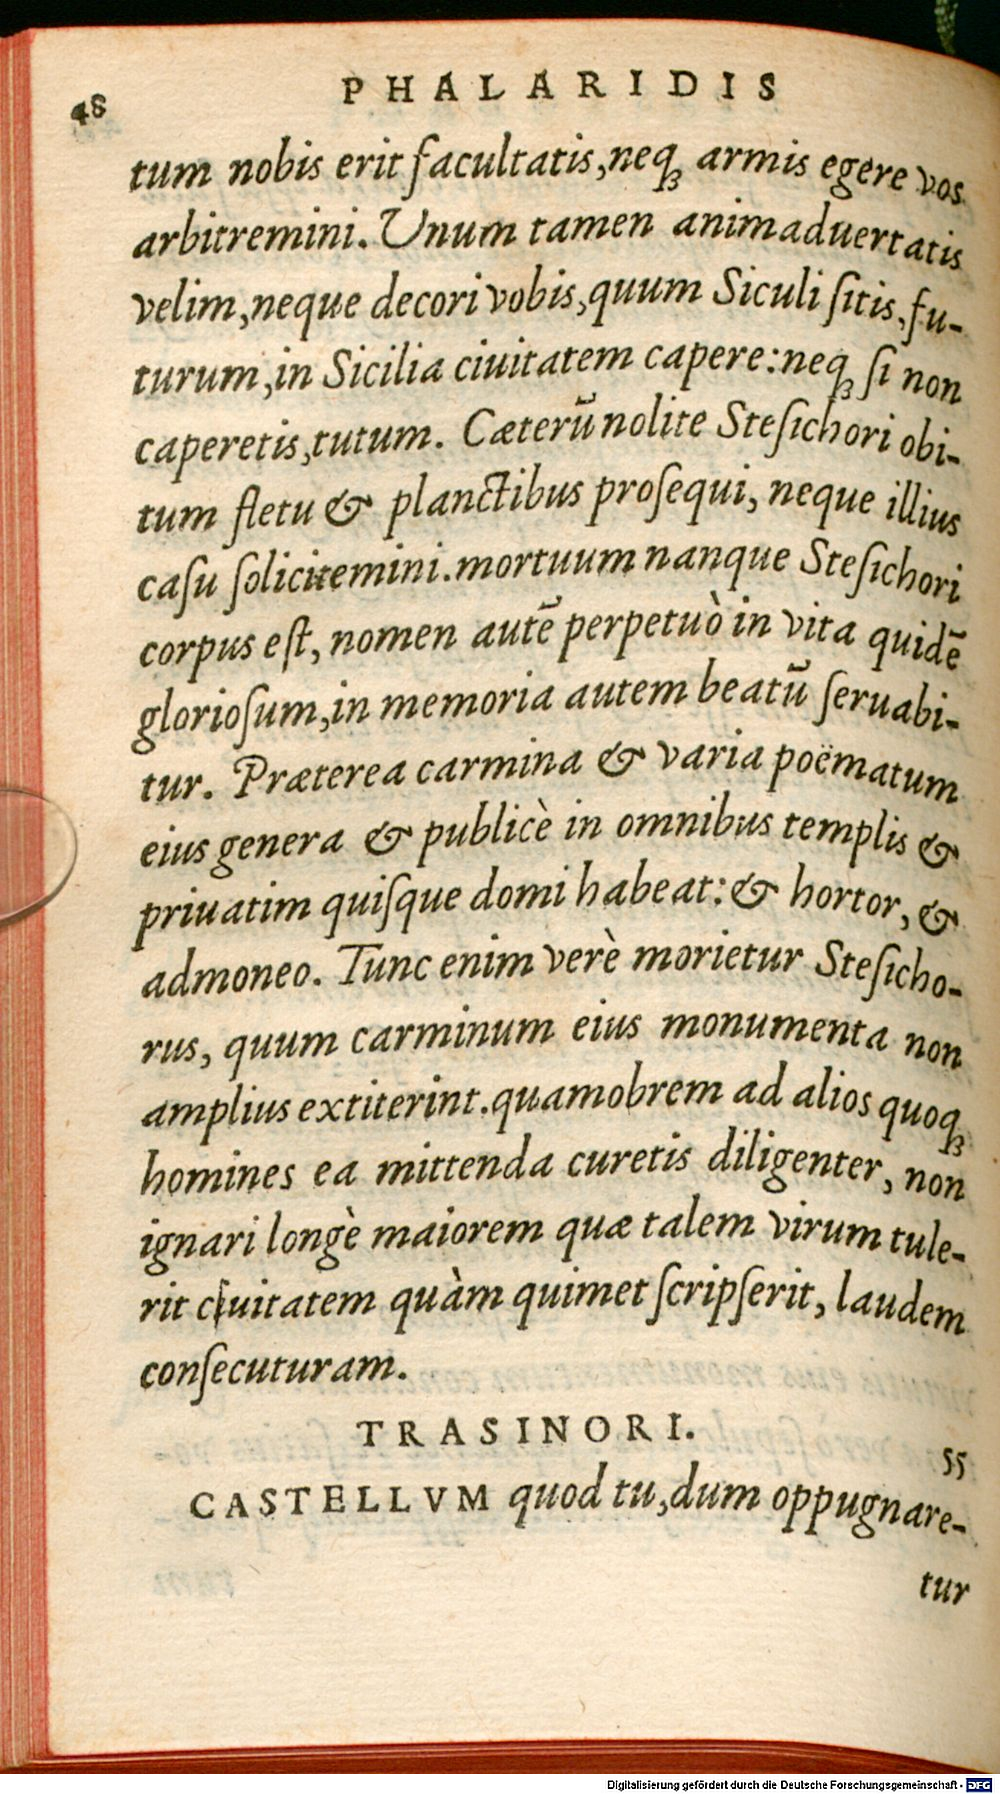 48
PHALARIDIS
tum nobis erit facultatis, neqꝫ armis egere vos
arbitremini. Unum tamen animaduertatis
velim, neque decori vobis, quum Siculi ſitis, fu-
turum, in Sicilia ciuitatem capere: neqꝫ ſi non
caperetis, tutum. Cæterū nolite Steſichori obi-
tum fletu & planctibus proſequi, neque illius
caſu ſolicitemini. mortuum nanque Steſichori
corpus eſt, nomen autē perpetuò in vita quidē
glorioſum, in memoria autem beatū ſeruabi-
tur. Præterea carmina & varia poëmatum
eius genera & publicè in omnibus templis &
priuatim quiſque domi habeat: & hortor, &
admoneo. Tunc enim verè morietur Steſicho-
rus, quum carminum eius monumenta non
amplius extiterint. quamobrem ad alios quoqꝫ
homines ea mittenda curetis diligenter, non
ignari longè maiorem quæ talem virum tule-
rit ciuitatem quàm quimet ſcripſerit, laudem
conſecuturam.
TRASINORI.
55
CASTELLVM quod tu, dum oppugnare-
tur
Digitalisierung gefördert durch die Deutsche Forschungsgemeinschaft - DFG